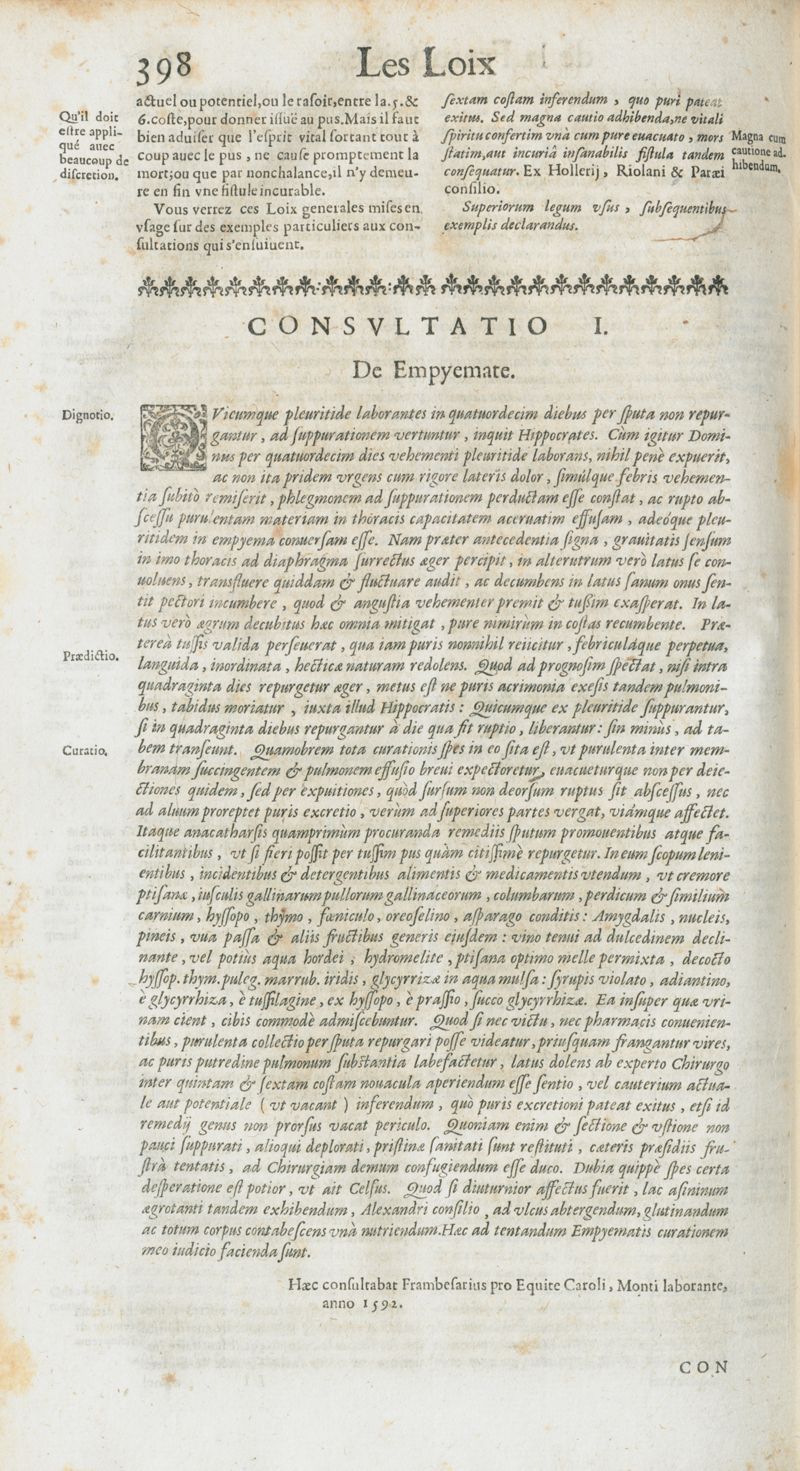 398
Les Loix
Qu'il doit
estre appli-
qué auec
beaucoup de
discretion.
actuel ou potentiel,ou le rasoir,entre la.5.&
6.coste,pour donner issuë au pus.Mais il faut
bien aduiser que l'esprit vital sortant tout à
coup auec le pus , ne cause promptement la
mort;ou que par nonchalance,il n'y demeu-
re en fin vne fistule incurable.
Vous verrez ces Loix generales mises en
vsage sur des exemples particuliers aux con-
sultations qui s'ensuiuent.
sextam costam inferendum , quo puri pateat
exitus. Sed magna cautio adhibenda,ne vitali
spiritu confertim vnà cum pure euacuato , mors
statim,aut incuriâ insanabilis fistula tandem
consequatur. Ex Hollerij , Riolani & Paræi
consilio.
Superiorum legum vsus , subsequentibus
exemplis declarandus.
Magna cum
cautione ad-
hibendum.
CONSVLTATIO I.
De Empyemate.
Dignotio.
QVicumque pleuritide laborantes in quatuordecim diebus per sputa non repur-
gantur , ad suppurationem vertuntur , inquit Hippocrates. Cùm igitur Domi-
nus per quatuordecim dies vehementi pleuritide laborans, nihil penè expuerit,
ac non ita pridem vrgens cum rigore lateris dolor , simúlque febris vehemen-
tia subitò remiserit , phlegmonem ad suppurationem perductam esse constat , ac rupto ab-
scessu purulentam materiam in thoracis capacitatem aceruatim effusam , adeóque pleu-
ritidem in empyema conuersam esse. Nam præter antecedentia signa , grauitatis sensum
in imo thoracis ad diaphragma surrectus æger percipit , in alterutrum verò latus se con-
uoluens , transfluere quiddam & fluctuare audit , ac decumbens in latus sanum onus sen-
tit pectori incumbere , quod & angustia vehementer premit & tussim exasperat. In la-
tus verò ægrum decubitus hæc omnia mitigat , pure nimirum in costas recumbente. Præ-
tereà tussis valida perseuerat , qua iam puris nonnihil reiicitur , febriculáque perpetua,
Prædictio.
languida , inordinata , hecticæ naturam redolens. Quod ad prognosim spectat , nisi intra
quadraginta dies repurgetur æger , metus est ne puris acrimonia exesis tandem pulmoni-
bus , tabidus moriatur , iuxta illud Hippocratis : Quicumque ex pleuritide suppurantur,
si in quadraginta diebus repurgantur à die qua fit ruptio , liberantur : sin minùs , ad ta-
Curatio.
bem transeunt. Quamobrem tota curationis spes in eo sita est , vt purulenta inter mem-
branam succingentem & pulmonem effusio breui expectoretur, euacueturque non per deie-
ctiones quidem , sed per expuitiones , quòd sursum non deorsum ruptus sit abscessus , nec
ad aluum proreptet puris excretio , verùm ad superiores partes vergat, viámque affectet.
Itaque anacatharsis quamprimùm procuranda remediis sputum promouentibus atque fa-
cilitantibus , vt si fieri possit per tussim pus quàm citissimè repurgetur. In eum scopum leni-
entibus , incidentibus & detergentibus alimentis & medicamentis vtendum , vt cremore
ptisanæ , iusculis gallinarum pullorum gallinaceorum , columbarum , perdicum & similium
carnium , hyssopo , thymo , fœniculo , oreoselino , asparago conditis : Amygdalis , nucleis,
pineis , vua passa & aliis fructibus generis eiusdem : vino tenui ad dulcedinem decli-
nante , vel potiùs aqua hordei , hydromelite , ptisana optimo melle permixta , decocto
hyssop. thym. puleg. marrub. iridis , glycyrrizæ in aqua mulsa : syrupis violato , adiantino,
è glycyrrhiza , è tussilagine , ex hyssopo , è prassio , succo glycyrrhizæ. Ea insuper quæ vri-
nam cient , cibis commodè admiscebuntur. Quod si nec victu , nec pharmacis conuenien-
tibus , purulenta collectio per sputa repurgari posse videatur , priusquam frangantur vires,
ac puris putredine pulmonum substantia labefactetur , latus dolens ab experto Chirurgo
inter quintam & sextam costam nouacula aperiendum esse sentio , vel cauterium actua-
le aut potentiale ( vt vacant ) inferendum , quò puris excretioni pateat exitus , etsi id
remedij genus non prorsus vacat periculo. Quoniam enim & sectione & vstione non
pauci suppurati , alioqui deplorati , pristinæ sanitati sunt restituti , cæteris præsidiis fru-
strà tentatis , ad Chirurgiam demum confugiendum esse duco. Dubia quippè spes certa
desperatione est potior , vt ait Celsus. Quod si diuturnior affectus fuerit , lac asininum
ægrotanti tandem exhibendum , Alexandri consilio , ad vlcus abtergendum, glutinandum
ac totum corpus contabescens vnà nutriendum.Hæc ad tentandum Empyematis curationem
meo iudicio facienda sunt.
Hæc consultabat Frambesarius pro Equite Caroli , Monti laborante,
anno 1592.
CON